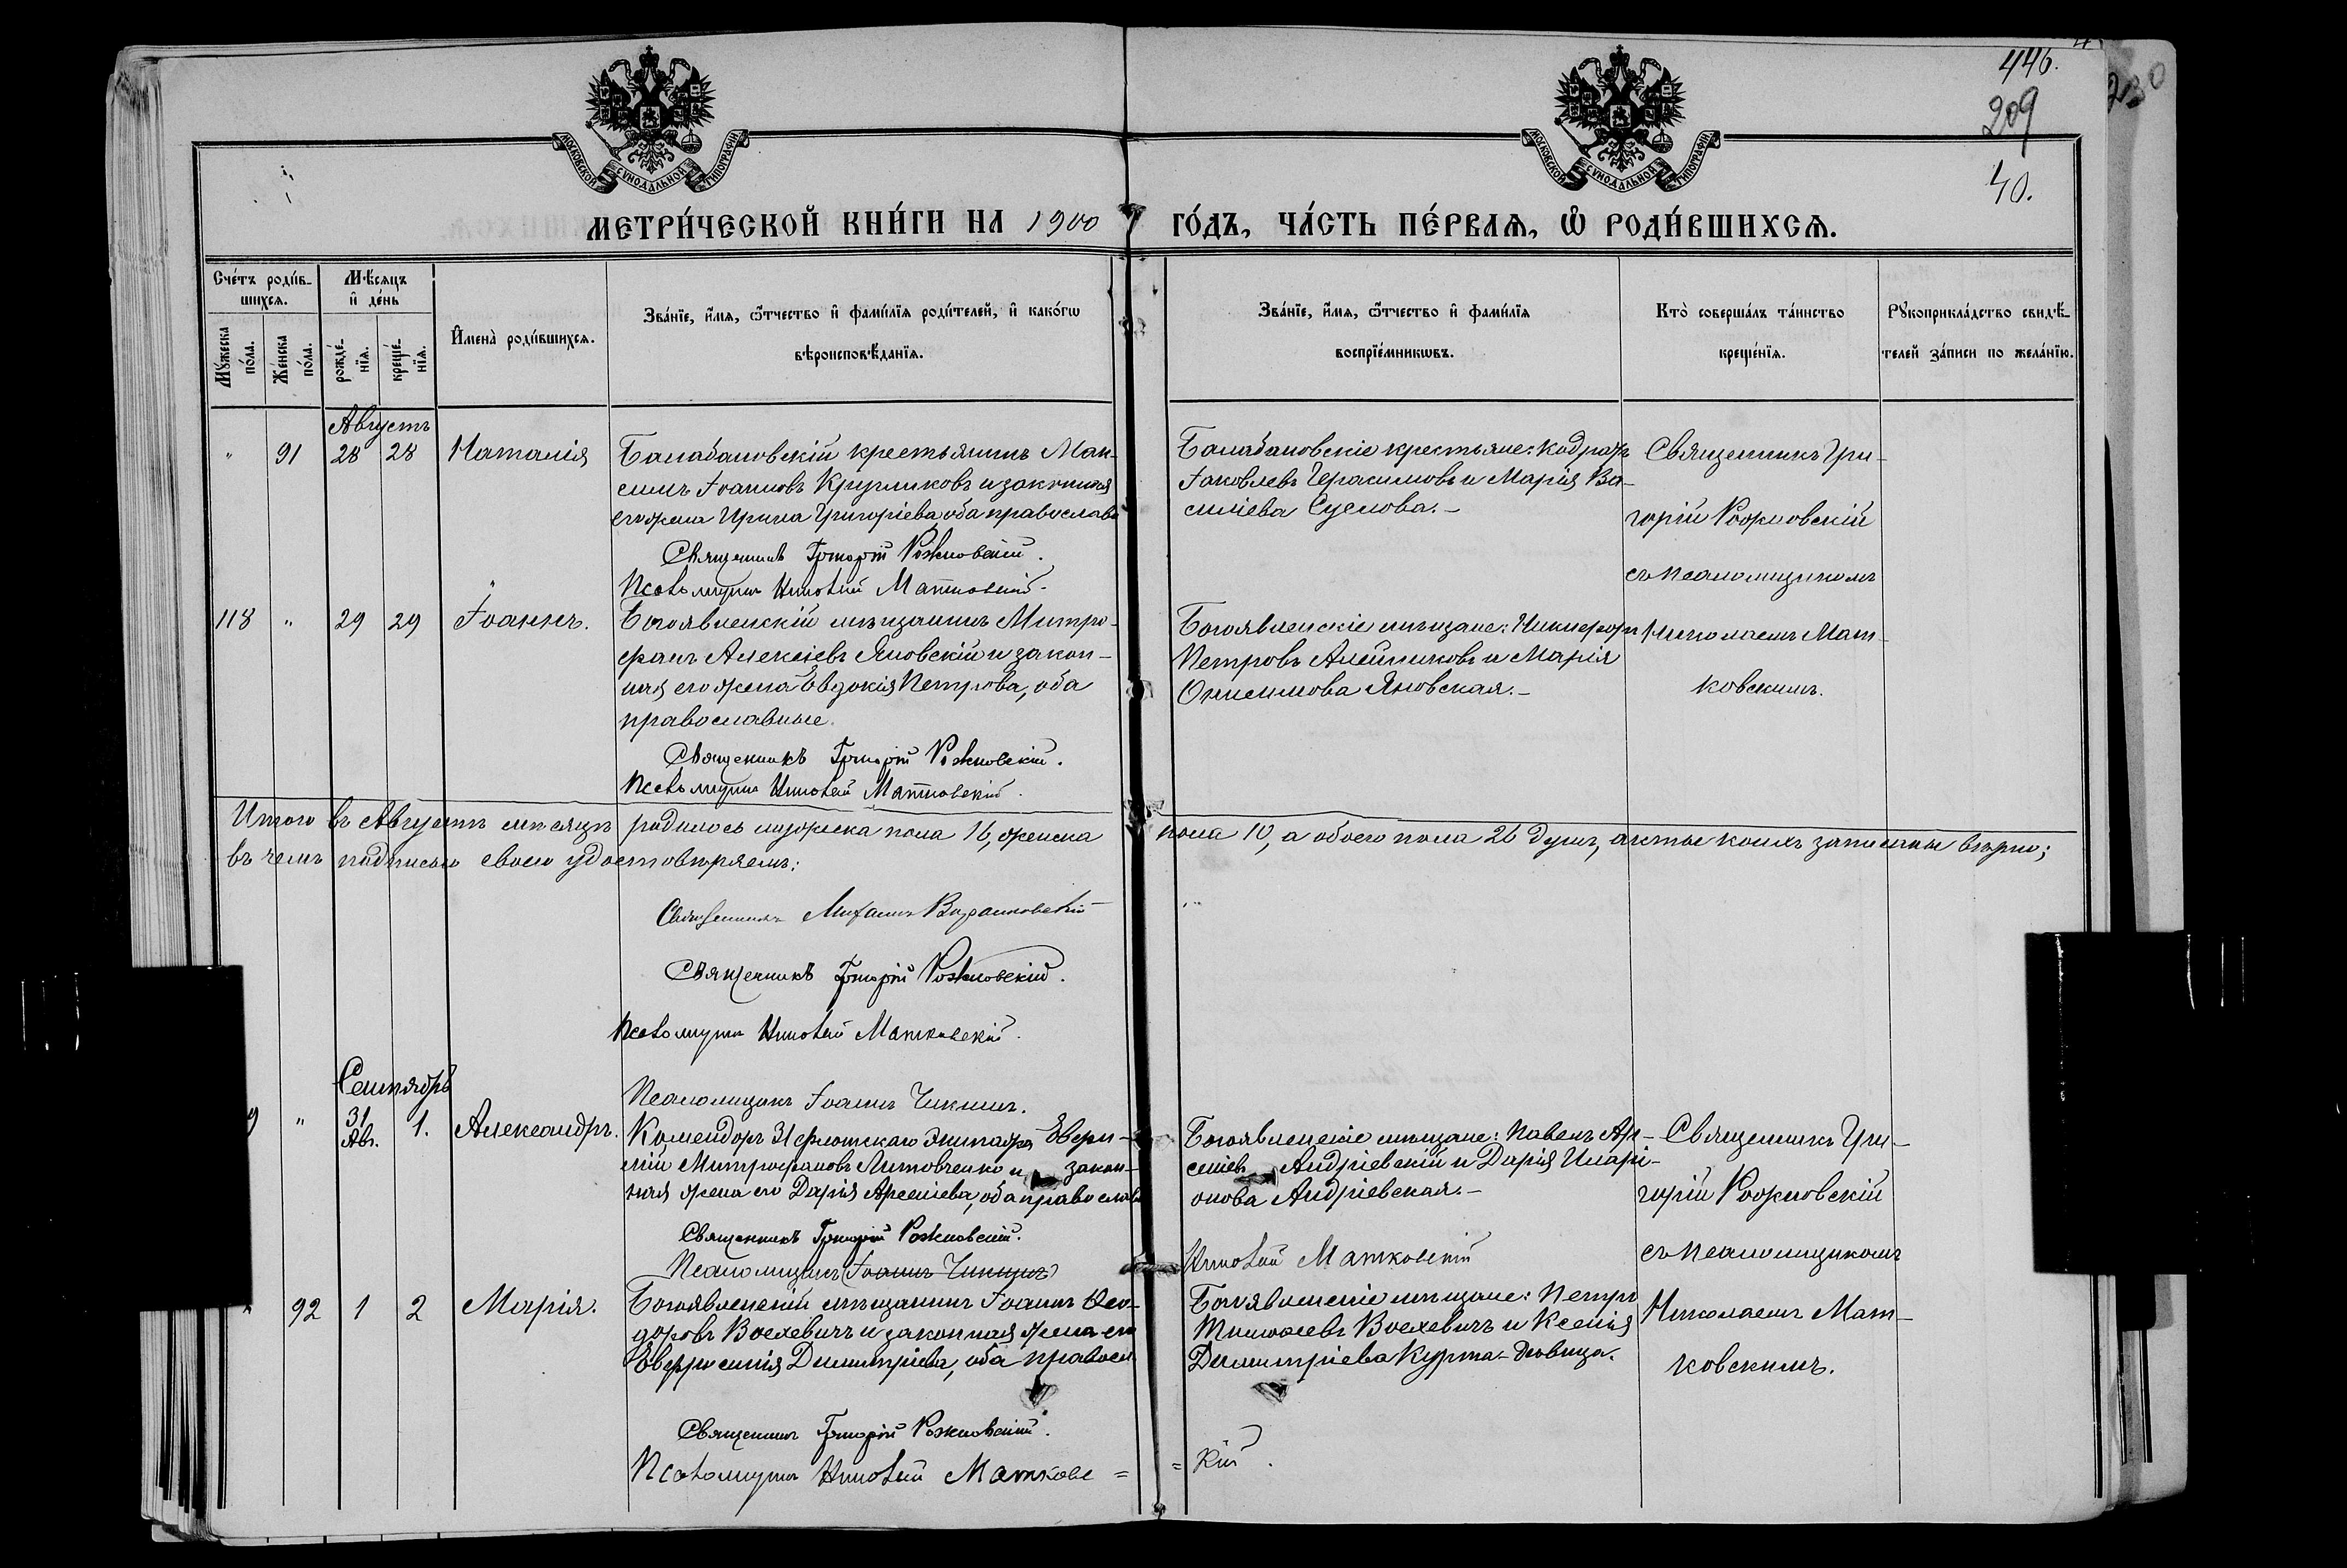 446.
209
230
40.
МОСКОВСКОЙ СѴНОДАЛЬНОЙ ТИПОГРАФІИ
МОСКОВСКОЙ СѴНОДАЛЬНОЙ ТИПОГРАФІИ
МЕТРИ́ЧЕСКОЙ КНИ́ГИ НА 1900 ГО́ДЪ, ЧА́СТЬ ПЕ́РВАѦ, Ѡ҆ РОДИ́ВШИХСѦ.
Сче́тъ роди́в-
шихсѧ.
Мꙋ́жеска
по́ла.
Же́нска
по́ла.
Мѣ́сѧцъ
и҆ де́нь
рожде́-
нїѧ.
креще́-
нїѧ.
И҆мена̀ роди́вшихсѧ.
Зва́нїе, и҆́мѧ, ѻ҆́тчество и҆ фами́лїѧ роди́телей, и҆ како́гѡ
вѣроисповѣ́данїѧ.
Зва́нїе, и҆́мѧ, ѻ҆́тчество и҆ фами́лїѧ
воспрїе́мникѡвъ.
Кто̀ соверша́лъ та́инство
креще́нїѧ.
Рꙋкоприкла́дство свидѣ́-
телей за́писи по жела́нїю.
Августъ
" 91 28 28 Наталія
Балабановскій крестьянинъ Мак-
симъ Іоанновъ Кругликовъ и законная
его жена Ирина Григоріева, оба православн
Священникъ Григорій Рожновскій.
Псаломщикъ Николай Матковскій.
Балабановскіе крестьяне: Кодратъ
Іаковлевъ Герасимовъ и Марія Ва-
силіева Суслова.-
Священникъ Гри-
горій Рожновскій
съ псаломщикомъ
Николаемъ Мат-
ковскимъ.
118 " 29 29 Іоаннъ.
Богоявленскій мѣщанинъ Митро-
фанъ Алексіевъ Яновскій и закон-
ная его жена Евдокія Петрова, оба
православные.
Священникъ Григорій Рожновскій.
Псаломщикъ Николай Матковскій.
Богоявленскіе мѣщане: Никифоръ
Петровъ Алейниковъ и Марія
Онисимова Яновская.-
Итого въ Августѣ мѣсяцѣ родилось мужеска пола 16, женска пола 10, а обоего пола 26 душъ, акты коихъ записаны вѣрно;
въ чемъ подписью своею удостовѣряемъ:
Священникъ Михаилъ
Священникъ Григорій Рожновскій.
Псаломщикъ Николай Матковскій.
Псаломщикъ Іоаннъ Чикинъ.
Сентябрь
9 " 31 Авг. 1. Александръ.
Комендоръ 31 флотскаго Экипажа Еври-
мій Митрофановъ Литовченко и закон-
ная жена его Дарія Арсеніева, оба православн
Священникъ Григорій Рожновскій.
Псаломщикъ (Іоаннъ Чикинъ) Николай Матковскій
Богоявленскіе мѣщане: Павелъ Ар-
сеніевъ Андріевскій и Дарія Иларі-
онова Андріевская.-
Священникъ Гри-
горій Рожновскій
съ псаломщикомъ
Николаемъ Мат-
ковскимъ.
" 92 1 2 Марія.
Богоявленскій мѣщанинъ Іоаннъ Ѳео-
доровъ Воехевичъ и законная жена его
Евфросинія Димитріева, оба правосл
Священникъ Григорій Рожновскій.
Псаломщикъ Николай Матковс = = кій.
Богоявленскіе мѣщане: Петръ
Тимоѳеевъ Воехевичъ и Ксенія
Димитріева Курта-дѣвица.